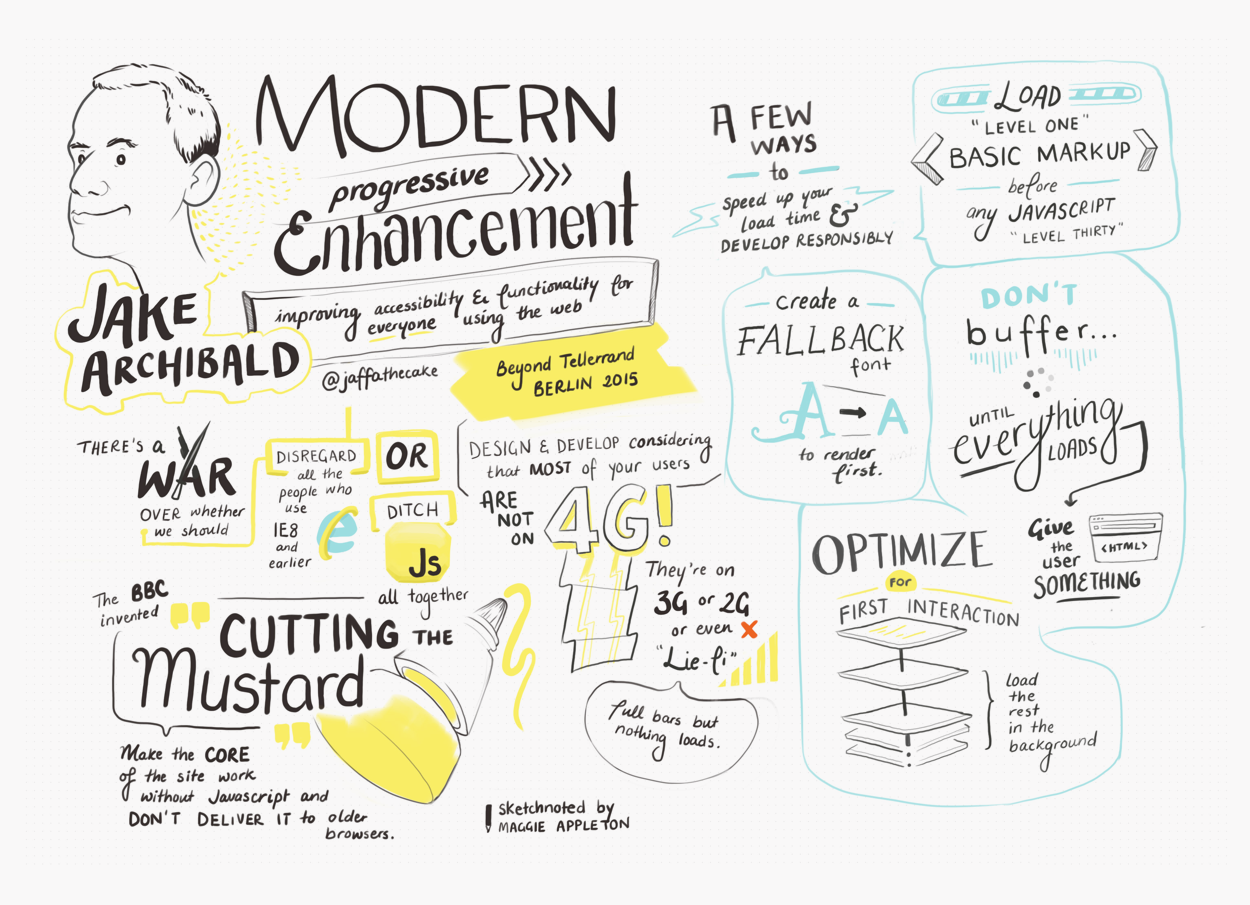 MODERN
progressive
Enhancement
JAKE
ARCHIBALD
improving accessibility & functionality for
everyone using the web
@jaffathecake
Beyond Tellerrand
BERLIN 2015
THERE'S A
WAR
OVER whether
we should
DISREGARD
all the
people who
use
IE8
and
earlier
e
OR
DITCH
Js
all together
DESIGN & DEVELOP considering
that MOST of your users
ARE
NOT
ON
4G!
They're on
3G or 2G
or even
"Lie-fi"
Full bars but
nothing loads.
The BBC
invented
"
CUTTING THE
Mustard
"
Make the CORE
of the site work
without Javascript and
DON'T DELIVER IT to older
browsers.
Sketchnoted by
MAGGIE APPLETON
A FEW
WAYS
to
speed up your
load time &
DEVELOP RESPONSIBLY
LOAD
"LEVEL ONE"
BASIC MARKUP
before
any JAVASCRIPT
"LEVEL THIRTY"
create a
FALLBACK
font
A → A
to render
first.
DON'T
buffer...
UNTIL
everything
LOADS
Give
the
user
SOMETHING
<HTML>
OPTIMIZE
FOR
FIRST INTERACTION
load
the
rest
in the
background